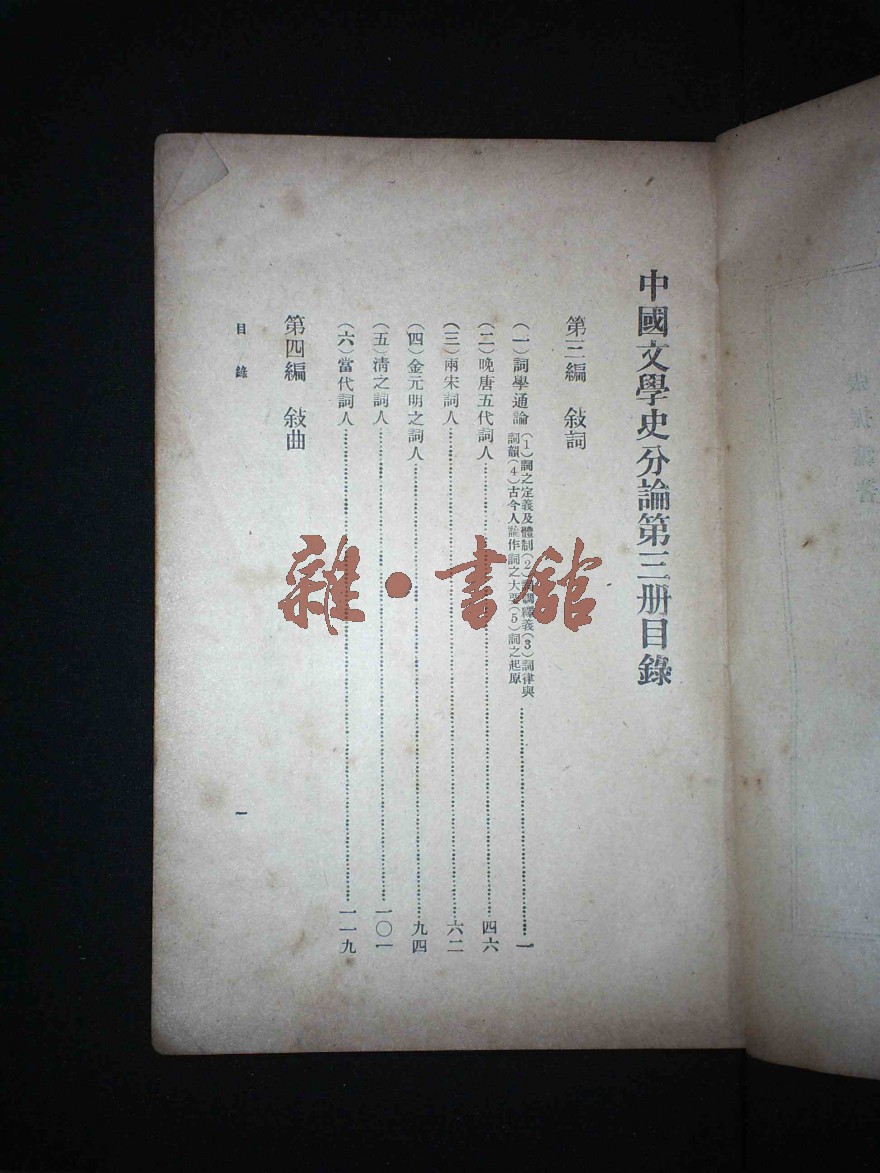 中國文學史分論第三册目錄
第三編　敍詞
(一)詞學通論(1)詞之定義及體制(2)詞調釋義(3)詞律與
詞韻(4)古今人論作詞之大要(5)詞之起原……一
(二)晚唐五代詞人……四六
(三)兩宋詞人……六二
(四)金元明之詞人……九四
(五)清之詞人……一〇一
(六)當代詞人……一一九
第四編　敍曲
目錄
一
雜·書館